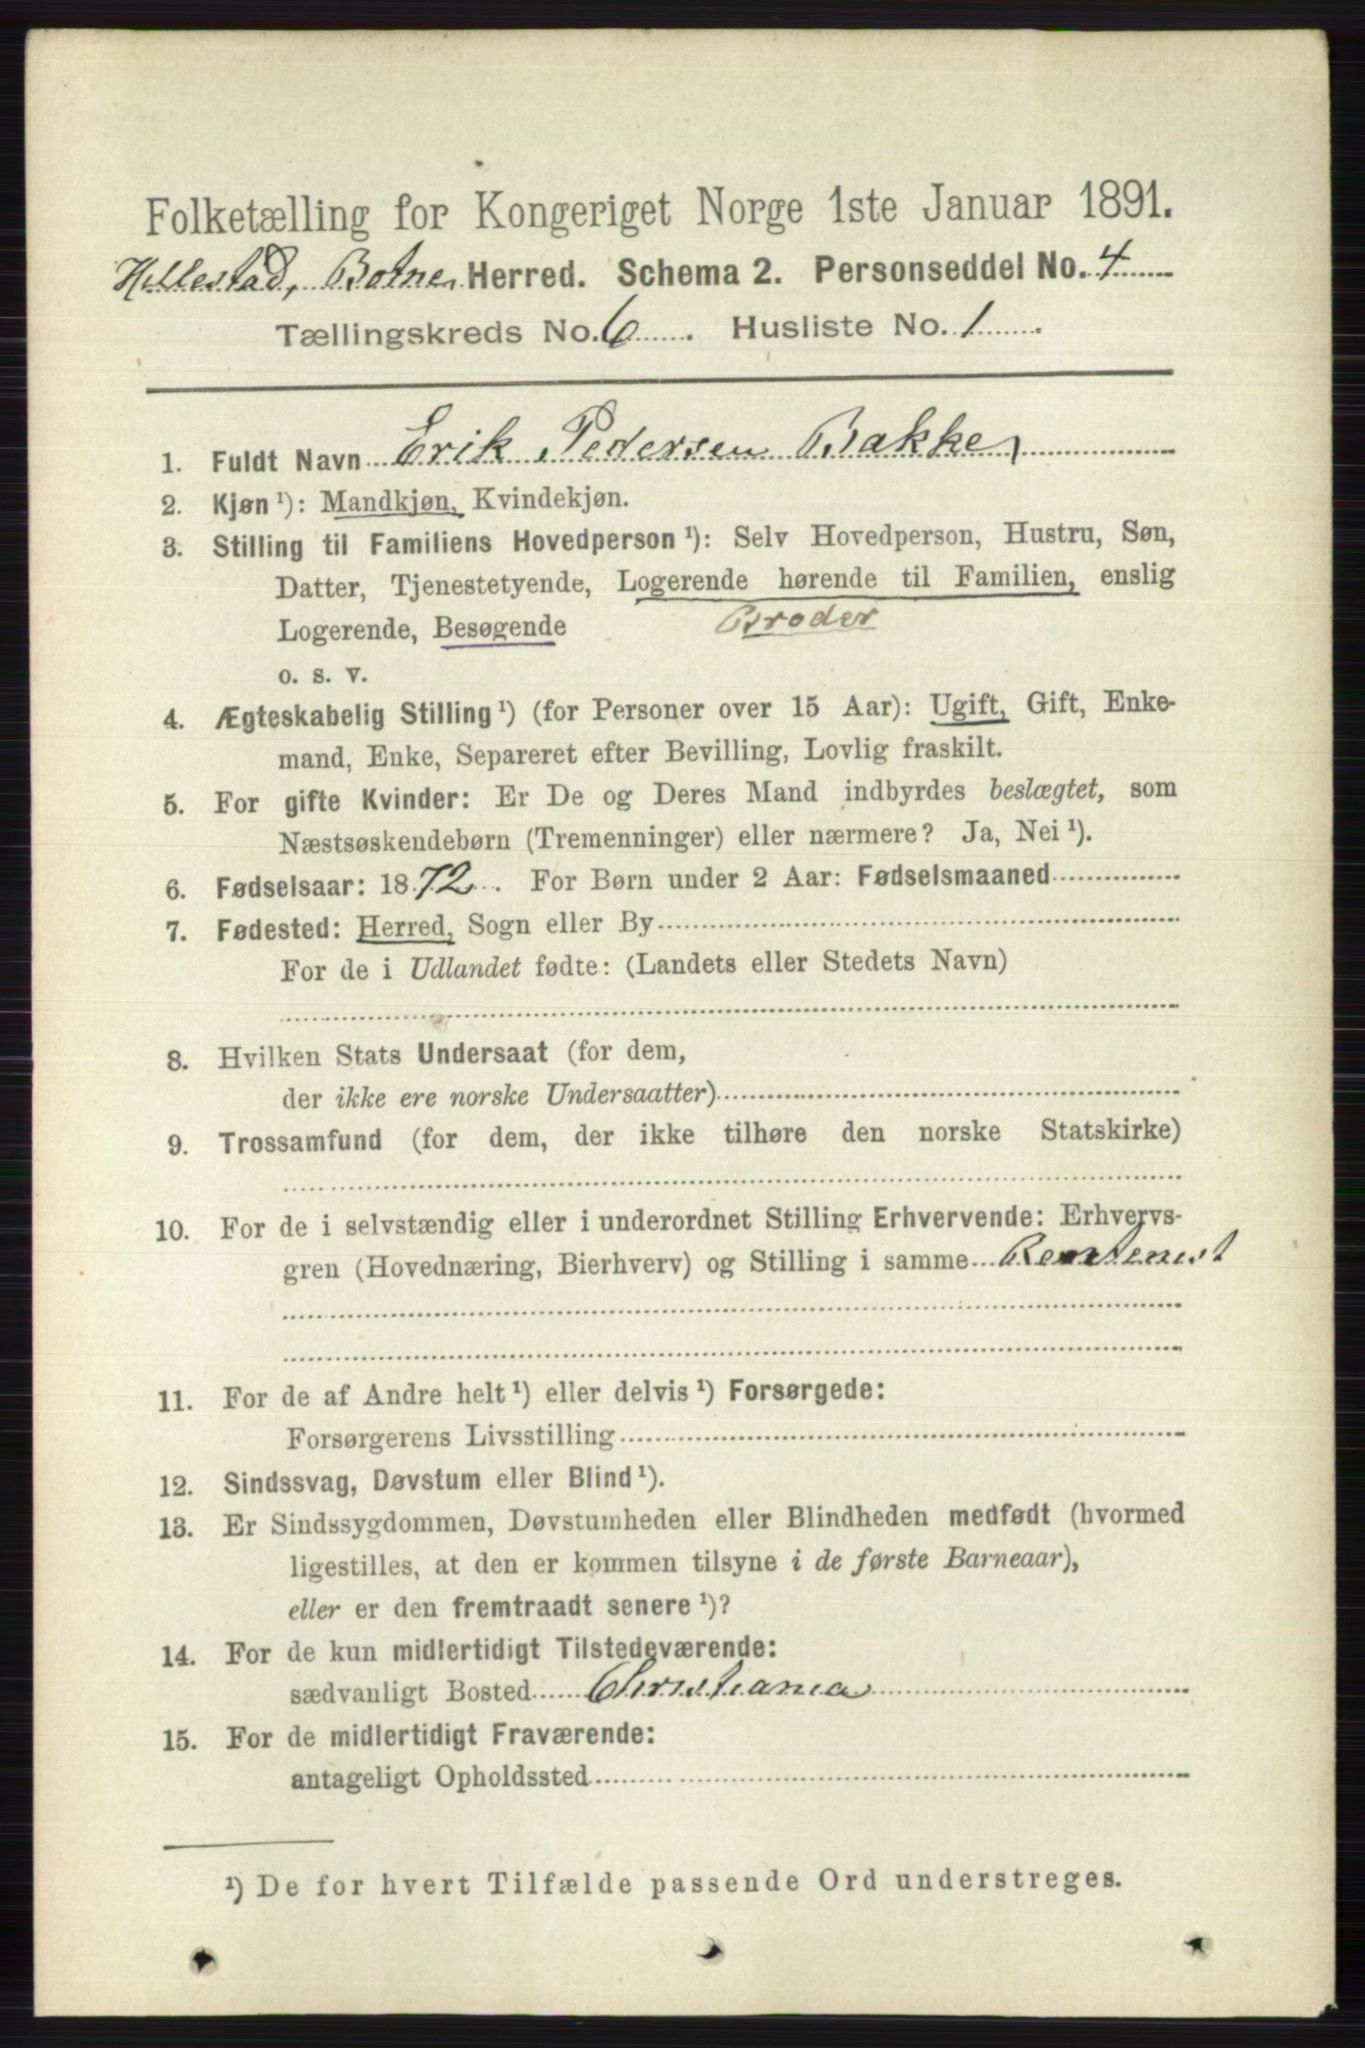 Folketælling for Kongeriget Norge 1ste Januar 1891.
Hillestad, Botne Herred. Schema 2. Personseddel No. 4
Tællingskreds No. 6. Husliste No. 1.
1. Fuldt Navn Erik Pedersen Bakke,
2. Kjøn ¹): Mandkjøn, Kvindekjøn.
3. Stilling til Familiens Hovedperson ¹): Selv Hovedperson, Hustru, Søn,
Datter, Tjenestetyende, Logerende hørende til Familien, enslig
Logerende, Besøgende Broder
o. s. v.
4. Ægteskabelig Stilling ¹) (for Personer over 15 Aar): Ugift, Gift, Enke-
mand, Enke, Separeret efter Bevilling, Lovlig fraskilt.
5. For gifte Kvinder: Er De og Deres Mand indbyrdes beslægtet, som
Næstsøskendebørn (Tremenninger) eller nærmere? Ja, Nei ¹).
6. Fødselsaar: 1872. For Børn under 2 Aar: Fødselsmaaned
7. Fødested: Herred, Sogn eller By
For de i Udlandet fødte: (Landets eller Stedets Navn)
8. Hvilken Stats Undersaat (for dem,
der ikke ere norske Undersaatter)
9. Trossamfund (for dem, der ikke tilhøre den norske Statskirke)
10. For de i selvstændig eller i underordnet Stilling Erhvervende: Erhvervs-
gren (Hovednæring, Bierhverv) og Stilling i samme
11. For de af Andre helt ¹) eller delvis ¹) Forsørgede:
Forsørgerens Livsstilling
12. Sindssvag, Døvstum eller Blind ¹).
13. Er Sindssygdommen, Døvstumheden eller Blindheden medfødt (hvormed
ligestilles, at den er kommen tilsyne i de første Barneaar),
eller er den fremtraadt senere ¹)?
14. For de kun midlertidigt Tilstedeværende:
sædvanligt Bosted Christiania
15. For de midlertidigt Fraværende:
antageligt Opholdssted
¹) De for hvert Tilfælde passende Ord understreges.